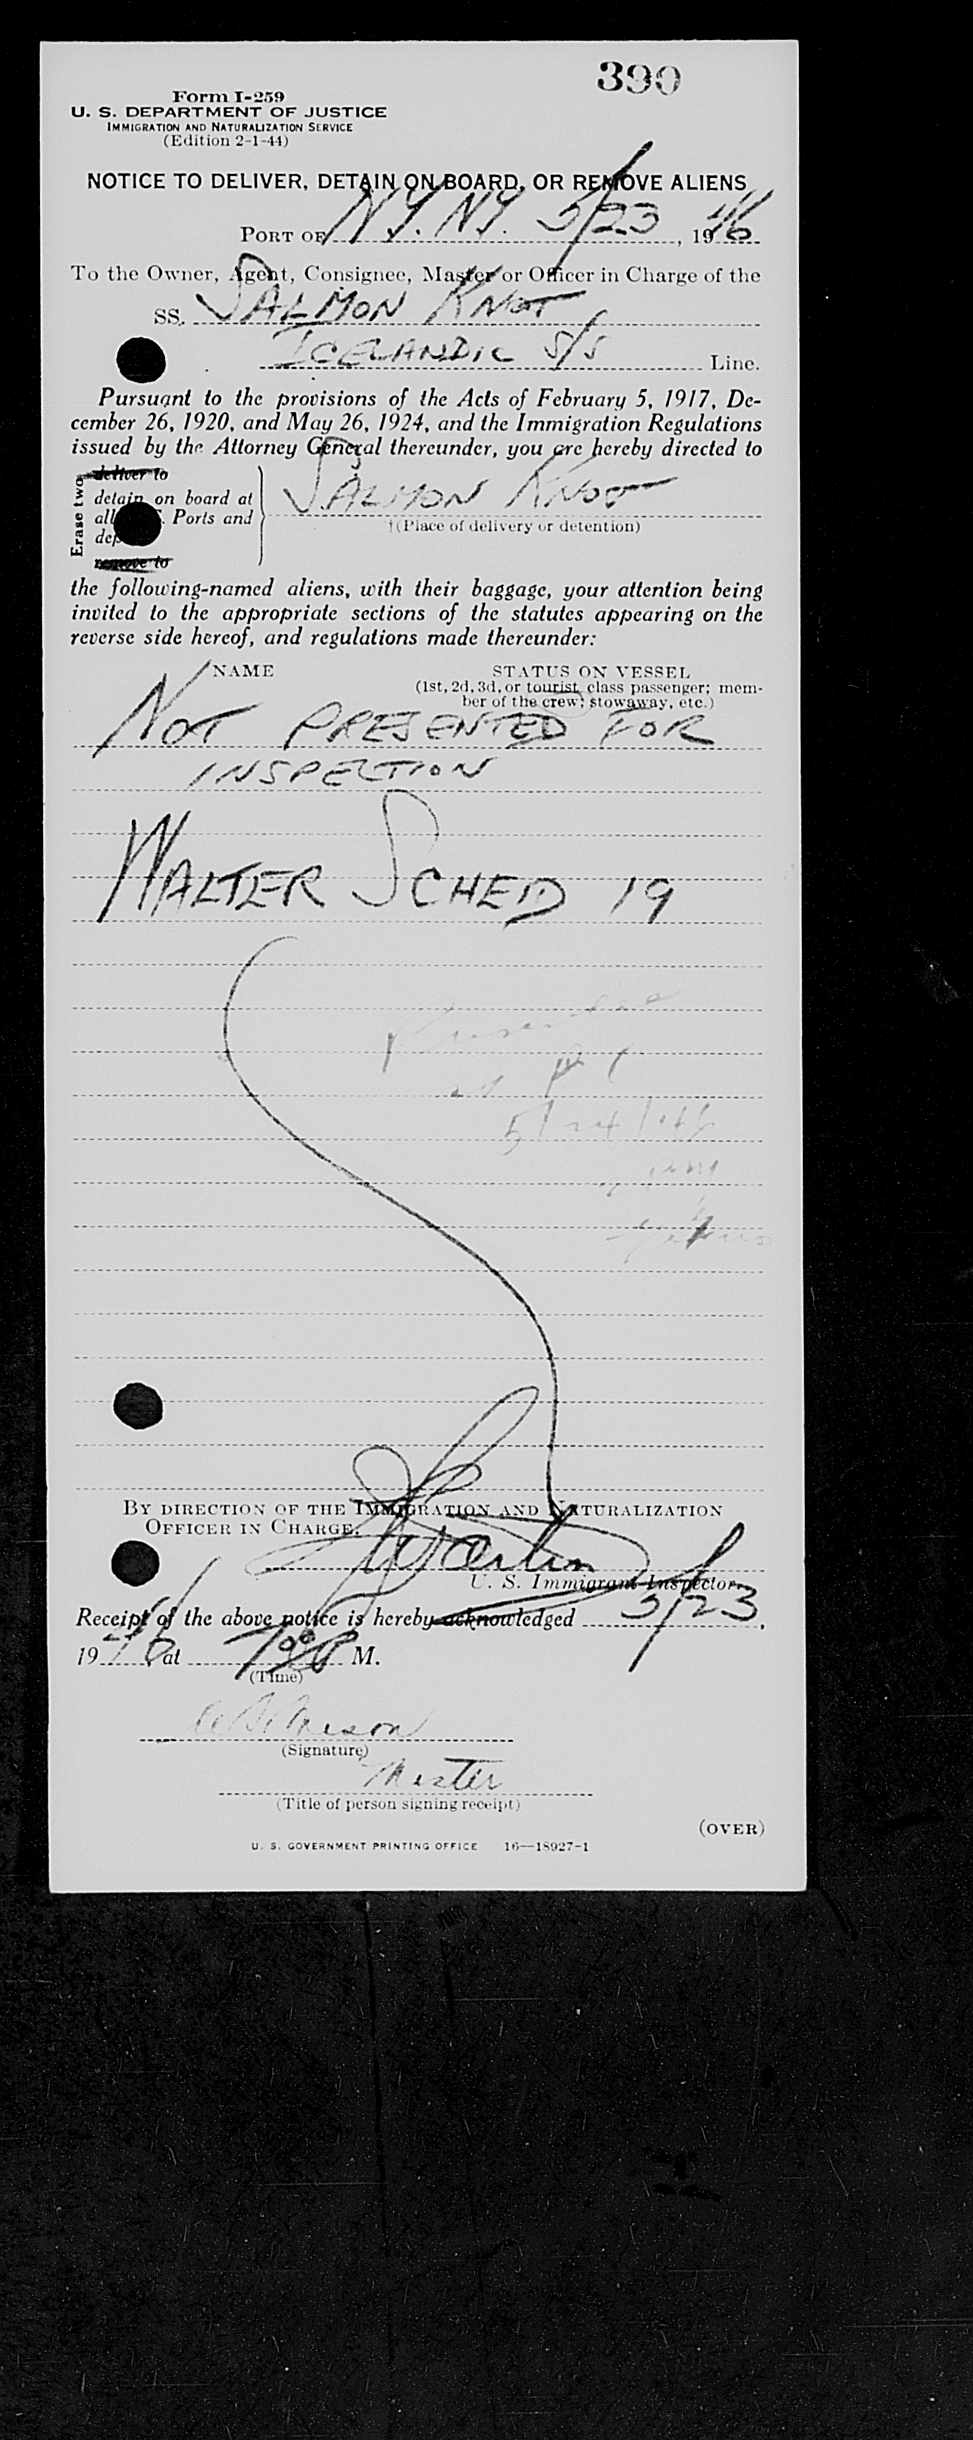 390
Form I-259
U. S. DEPARTMENT OF JUSTICE
IMMIGRATION AND NATURALIZATION SERVICE
(Edition 2-1-44)
NOTICE TO DELIVER, DETAIN ON BOARD, OR REMOVE ALIENS
PORT OF N.Y. N.Y. 5/23, 1946
To the Owner, Agent, Consignee, Master or Officer in Charge of the
SS. SALMON KNOT
ICELANDIC S/S Line.
Pursuant to the provisions of the Acts of February 5, 1917, De-
cember 26, 1920, and May 26, 1924, and the Immigration Regulations
issued by the Attorney General thereunder, you are hereby directed to
Erase two
deliver to
detain on board at
all U.S. Ports and
dep
remove to
SALMON KNOT
†(Place of delivery or detention)
the following-named aliens, with their baggage, your attention being
invited to the appropriate sections of the statutes appearing on the
reverse side hereof, and regulations made thereunder:
NAME STATUS ON VESSEL
(1st, 2d, 3d, or tourist class passenger; mem-
ber of the crew; stowaway, etc.)
NOT PRESENTED FOR
INSPECTION
WALTER SCHEID 19
5/24/46
BY DIRECTION OF THE IMMIGRATION AND NATURALIZATION
OFFICER IN CHARGE.
U. S. Immigrant Inspector.
Receipt of the above notice is hereby acknowledged 5/23,
1946, at 7:00 P M.
(Time)
(Signature)
Master
(Title of person signing receipt)
(OVER)
U. S. GOVERNMENT PRINTING OFFICE 16—18927-1